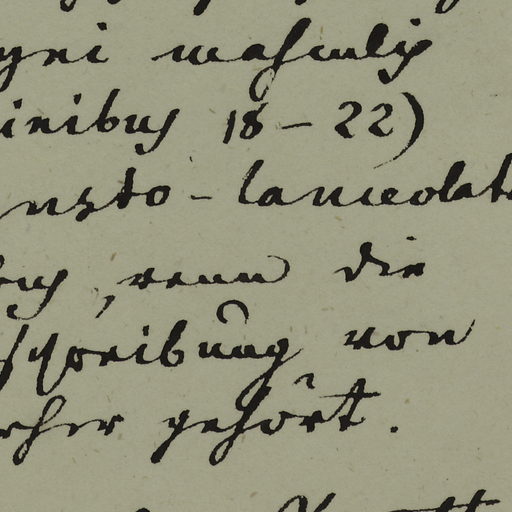 yni masculis
inibus 18 - 22)
nsto - lanceolat
us, wenn die
schreibung von
rher gehört.